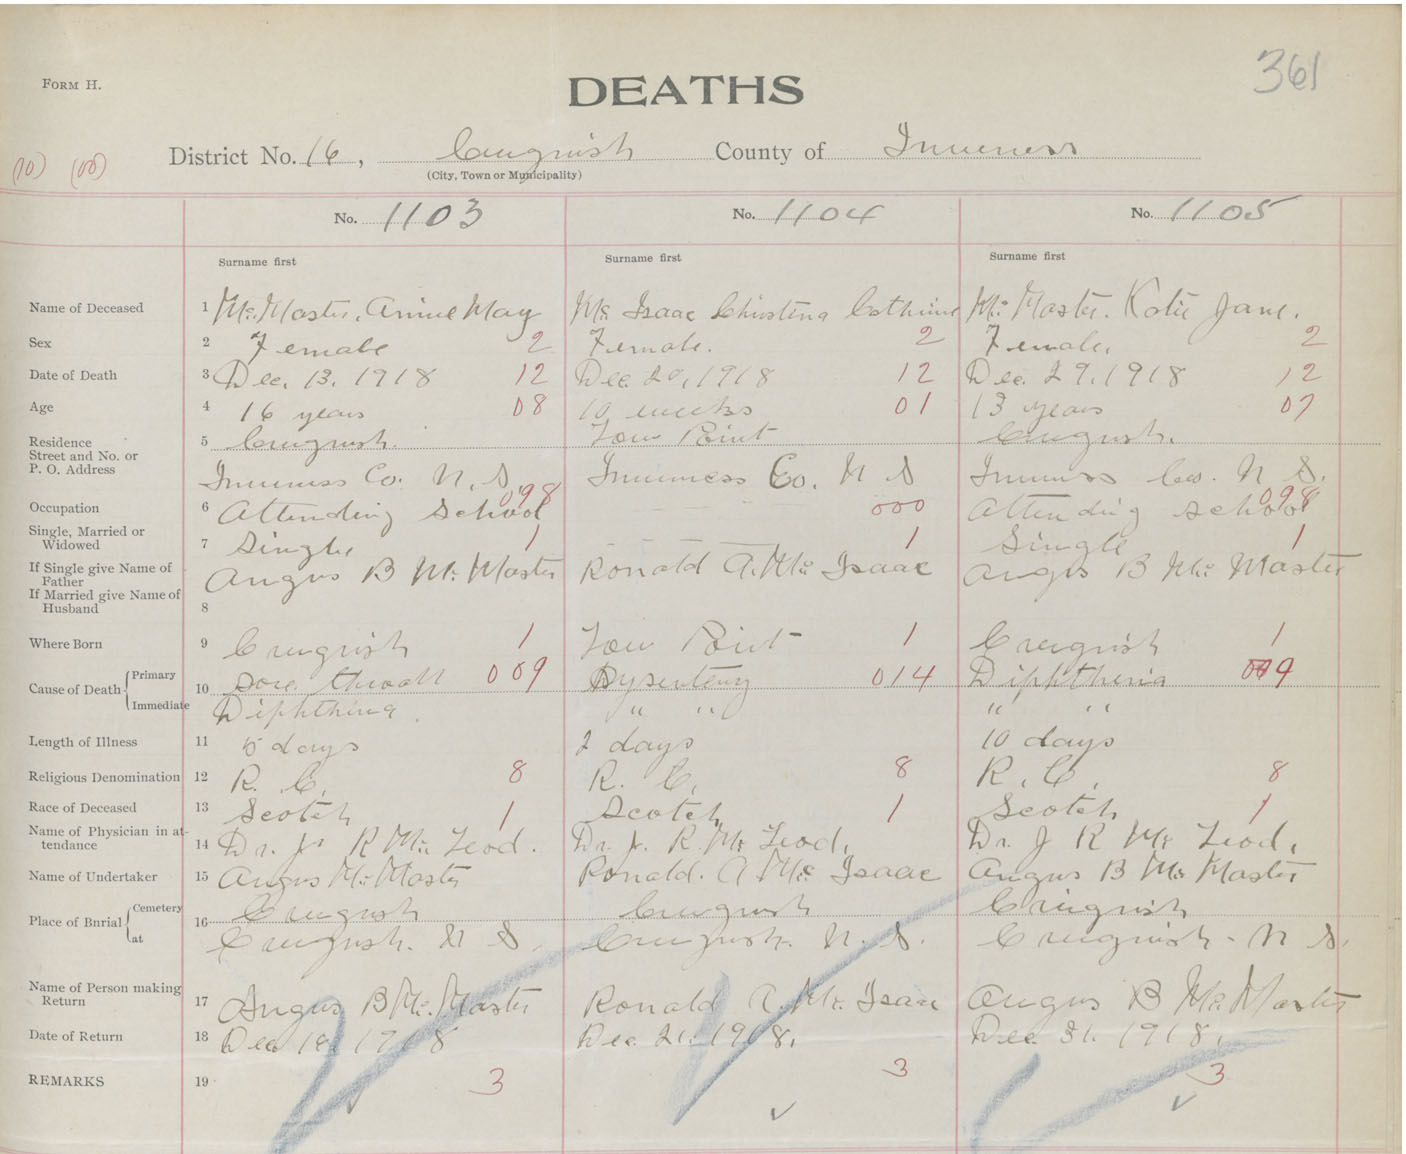 361
FORM H.
DEATHS
District No. 16, Creignish County of Inverness
(City, Town or Municipality)
(10) (00)
No. 1103 No. 1104 No. 1105
Surname first Surname first Surname first
Name of Deceased 1 Mc.Master, Annie May Mc Isaac Christena Cathrine Mc Master. Katie Jane.
Sex 2 Female 2 Female. 2 Female, 2
Date of Death 3 Dec. 13, 1918 12 Dec. 20, 1918 12 Dec. 29, 1918 12
Age 4 16 years 08 10 weeks 01 13 years 07
Residence 5 Creignish. Low Point Creignish.
Street and No. or
P. O. Address Inverness Co. N. S. Inverness Co. N S Inverness Co. N S.
Occupation 6 Attending School 098 000 Attending School 098
Single, Married or
Widowed 7 Single 1 1 Single 1
If Single give Name of
Father Angus B Mc Master Ronald A. Mc Isaac Angus B Mc Master
If Married give Name of
Husband 8
Where Born 9 Creignish 1 Low Point 1 Creignish 1
Cause of Death Primary 10 Sore throat 009 Dysentery 014 Diphtheria 9
Immediate Diphtheria. " " " "
Length of Illness 11 5 days 2 days 10 days
Religious Denomination 12 R. C. 8 R. C. 8 R. C. 8
Race of Deceased 13 Scotch 1 Scotch 1 Scotch 1
Name of Physician in at-
tendance 14 Dr. J. R Mc Leod. Dr. J. R. Mc Leod, Dr. J R Mc Leod,
Name of Undertaker 15 Angus Mc Master Ronald. A Mc Isaac Angus B Mc Master
Place of Bnrial Cemetery 16 Creignish Creignish Creignish
at Creignish. N S. Creignish. N. S. Creignish - N S.
Name of Person making
Return 17 Angus B Mc. Master Ronald A. Mc. Isaac Angus B Mc Master
Date of Return 18 Dec 1918 Dec. 21. 1918. Dec. 31. 1918.
REMARKS 19 3 3 3